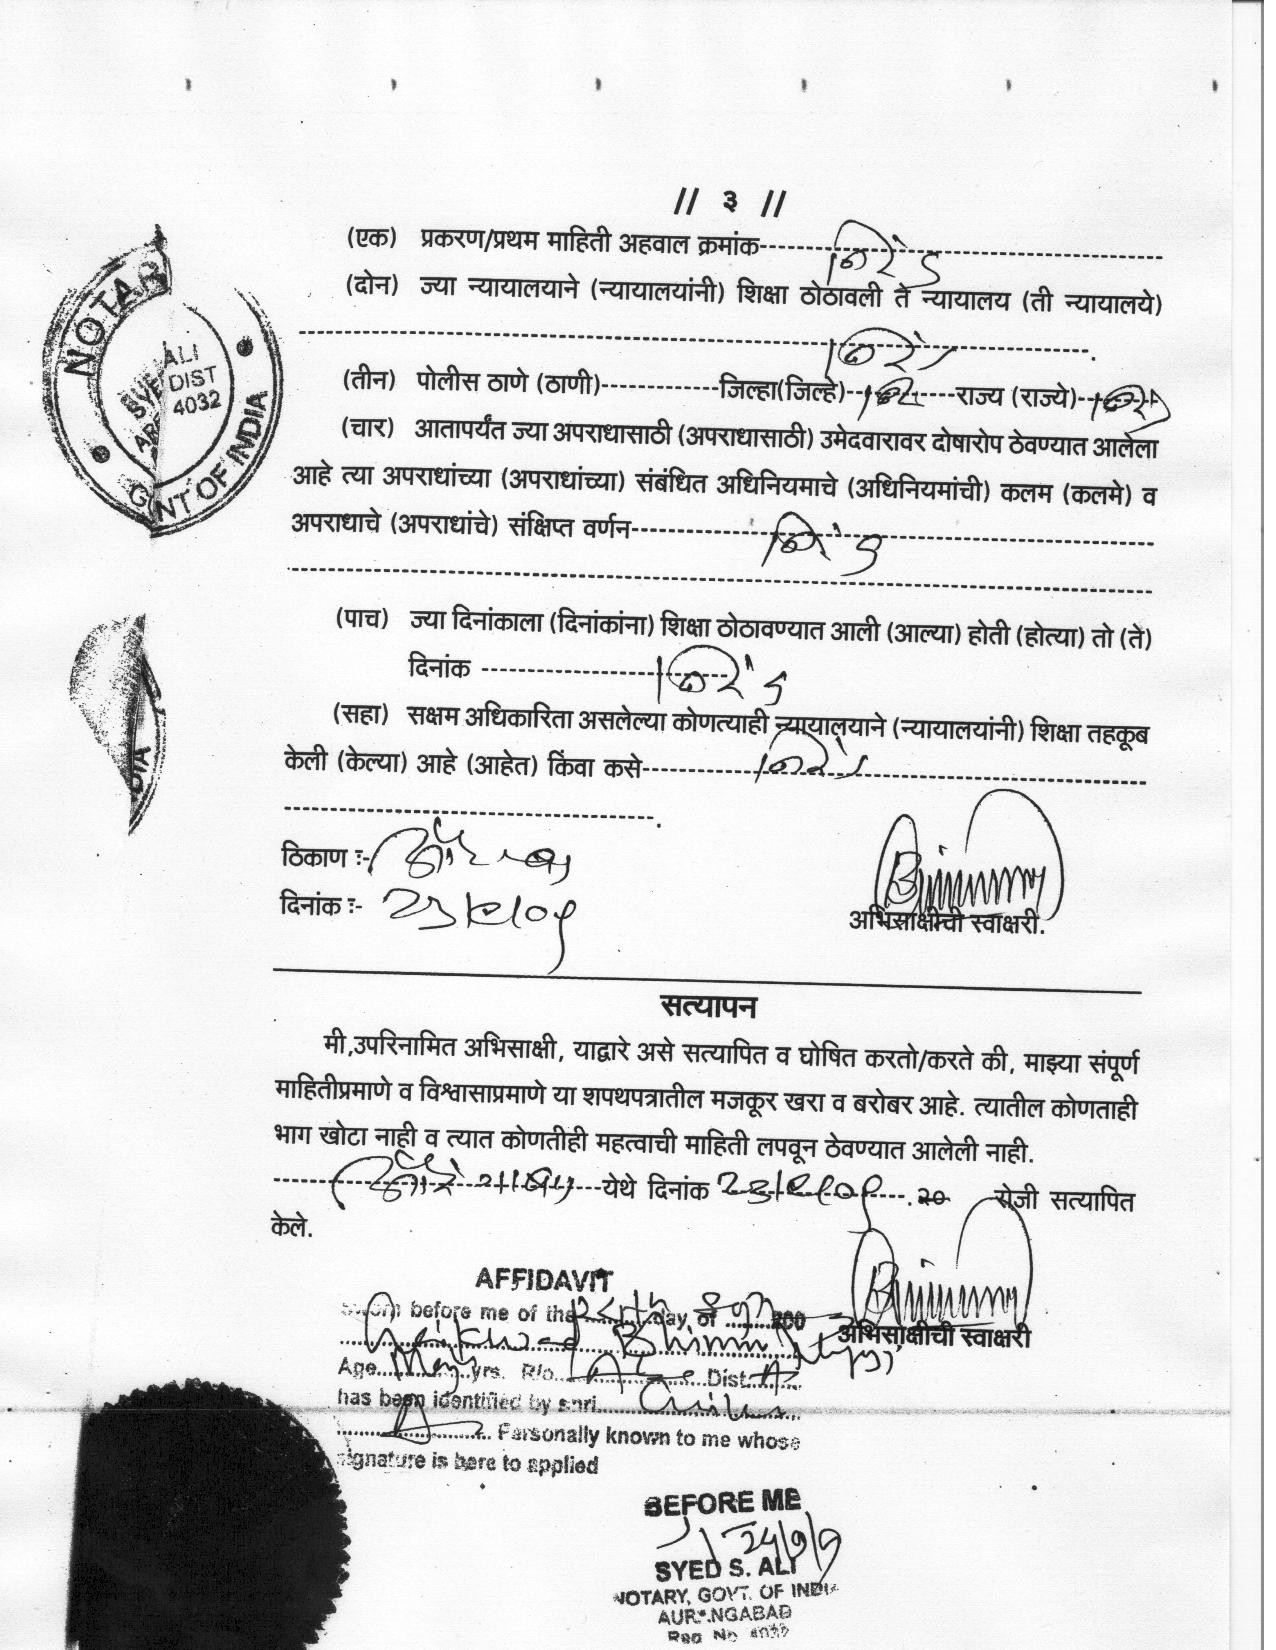 // ३ //
(एक) प्रकरण/प्रथम माहिती अहवाल क्रमांक-----निरंक-----
(दोन) ज्या न्यायालयाने (न्यायालयांनी) शिक्षा ठोठावली ते न्यायालय (ती न्यायालये)
-----निरंक-----.
(तीन) पोलीस ठाणे (ठाणी)-----जिल्हा(जिल्हे)-----राज्य (राज्ये)-----
(चार) आतापर्यंत ज्या अपराधासाठी (अपराधासाठी) उमेदवारावर दोषारोप ठेवण्यात आलेला
आहे त्या अपराधांच्या (अपराधांच्या) संबंधित अधिनियमाचे (अधिनियमांची) कलम (कलमे) व
अपराधाचे (अपराधांचे) संक्षिप्त वर्णन-----निरंक-----
(पाच) ज्या दिनांकाला (दिनांकांना) शिक्षा ठोठावण्यात आली (आल्या) होती (होत्या) तो (ते)
दिनांक -----निरंक
(सहा) सक्षम अधिकारिता असलेल्या कोणत्याही न्यायालयाने (न्यायालयांनी) शिक्षा तहकूब
केली (केल्या) आहे (आहेत) किंवा कसे-----निरंक-----
-----.
ठिकाण :-
दिनांक :- २३/९/०९
अभिसाक्षीची स्वाक्षरी.
सत्यापन
मी,उपरिनामित अभिसाक्षी, याद्वारे असे सत्यापित व घोषित करतो/करते की, माझ्या संपूर्ण
माहितीप्रमाणे व विश्वासाप्रमाणे या शपथपत्रातील मजकूर खरा व बरोबर आहे. त्यातील कोणताही
भाग खोटा नाही व त्यात कोणतीही महत्वाची माहिती लपवून ठेवण्यात आलेली नाही.
-----येथे दिनांक २३/९/०९-----.२० रोजी सत्यापित
केले.
अभिसाक्षीची स्वाक्षरी
AFFIDAVIT
Sworn before me of the ..... day of ..... 200
Gaikwad Bhimrao
Age.....yrs. R/o.....Dist.....
has been identified by shri.....
..... Parsonally known to me whose
signature is here to applied
BEFORE ME
24/9/9
SYED S. ALI
NOTARY, GOVT. OF INDIA
AURANGABAD
Reg No 4032
NOTAR
ALI
SYE DIST
4032
GVNT OF INDIA
DIA